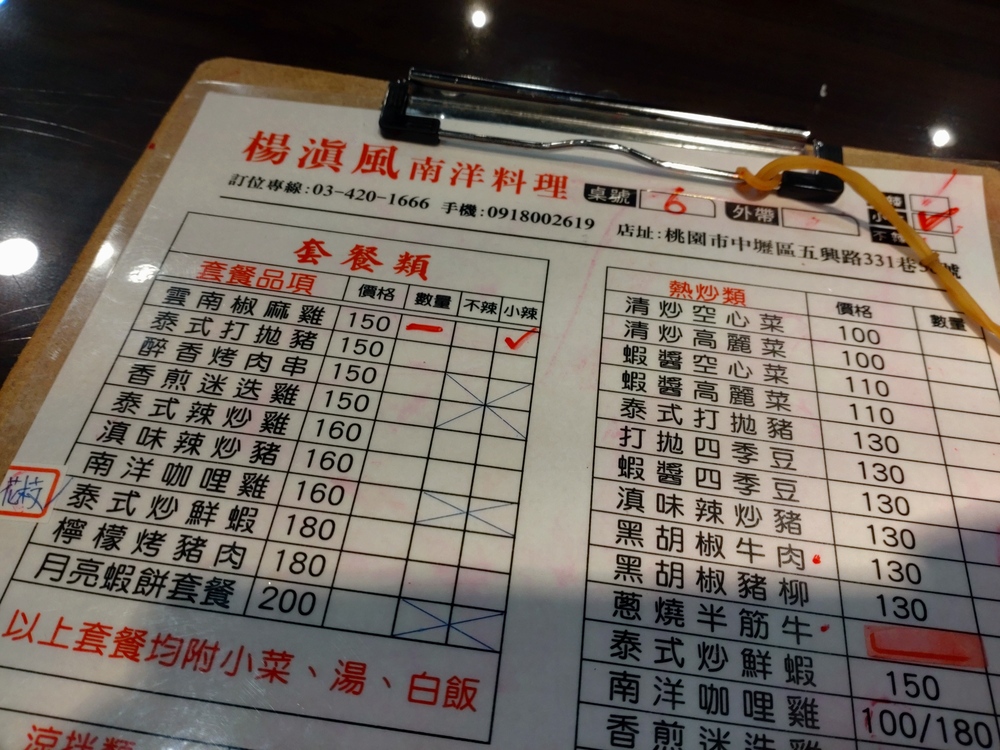 楊滇風南洋料理
桌號 6 外帶
訂位專線:03-420-1666 手機:0918002619 店址:桃園市中壢區五興路331巷
套餐類
套餐品項 價格 數量 不辣 小辣
雲南椒麻雞 150 一 ✓
泰式打拋豬 150
醉香烤肉串 150
香煎迷迭雞 150
泰式辣炒雞 160
滇味辣炒豬 160
南洋咖哩雞 160
花枝
泰式炒鮮蝦 180
檸檬烤豬肉 180
月亮蝦餅套餐 200
以上套餐均附小菜、湯、白飯
涼拌類
熱炒類 價格 數量
清炒空心菜 100
清炒高麗菜 100
蝦醬空心菜 110
蝦醬高麗菜 110
泰式打拋豬 130
打拋四季豆 130
蝦醬四季豆 130
滇味辣炒豬 130
黑胡椒牛肉 130
黑胡椒豬柳 130
蔥燒半筋牛
泰式炒鮮蝦 150
南洋咖哩雞 100/180
香煎迷迭雞